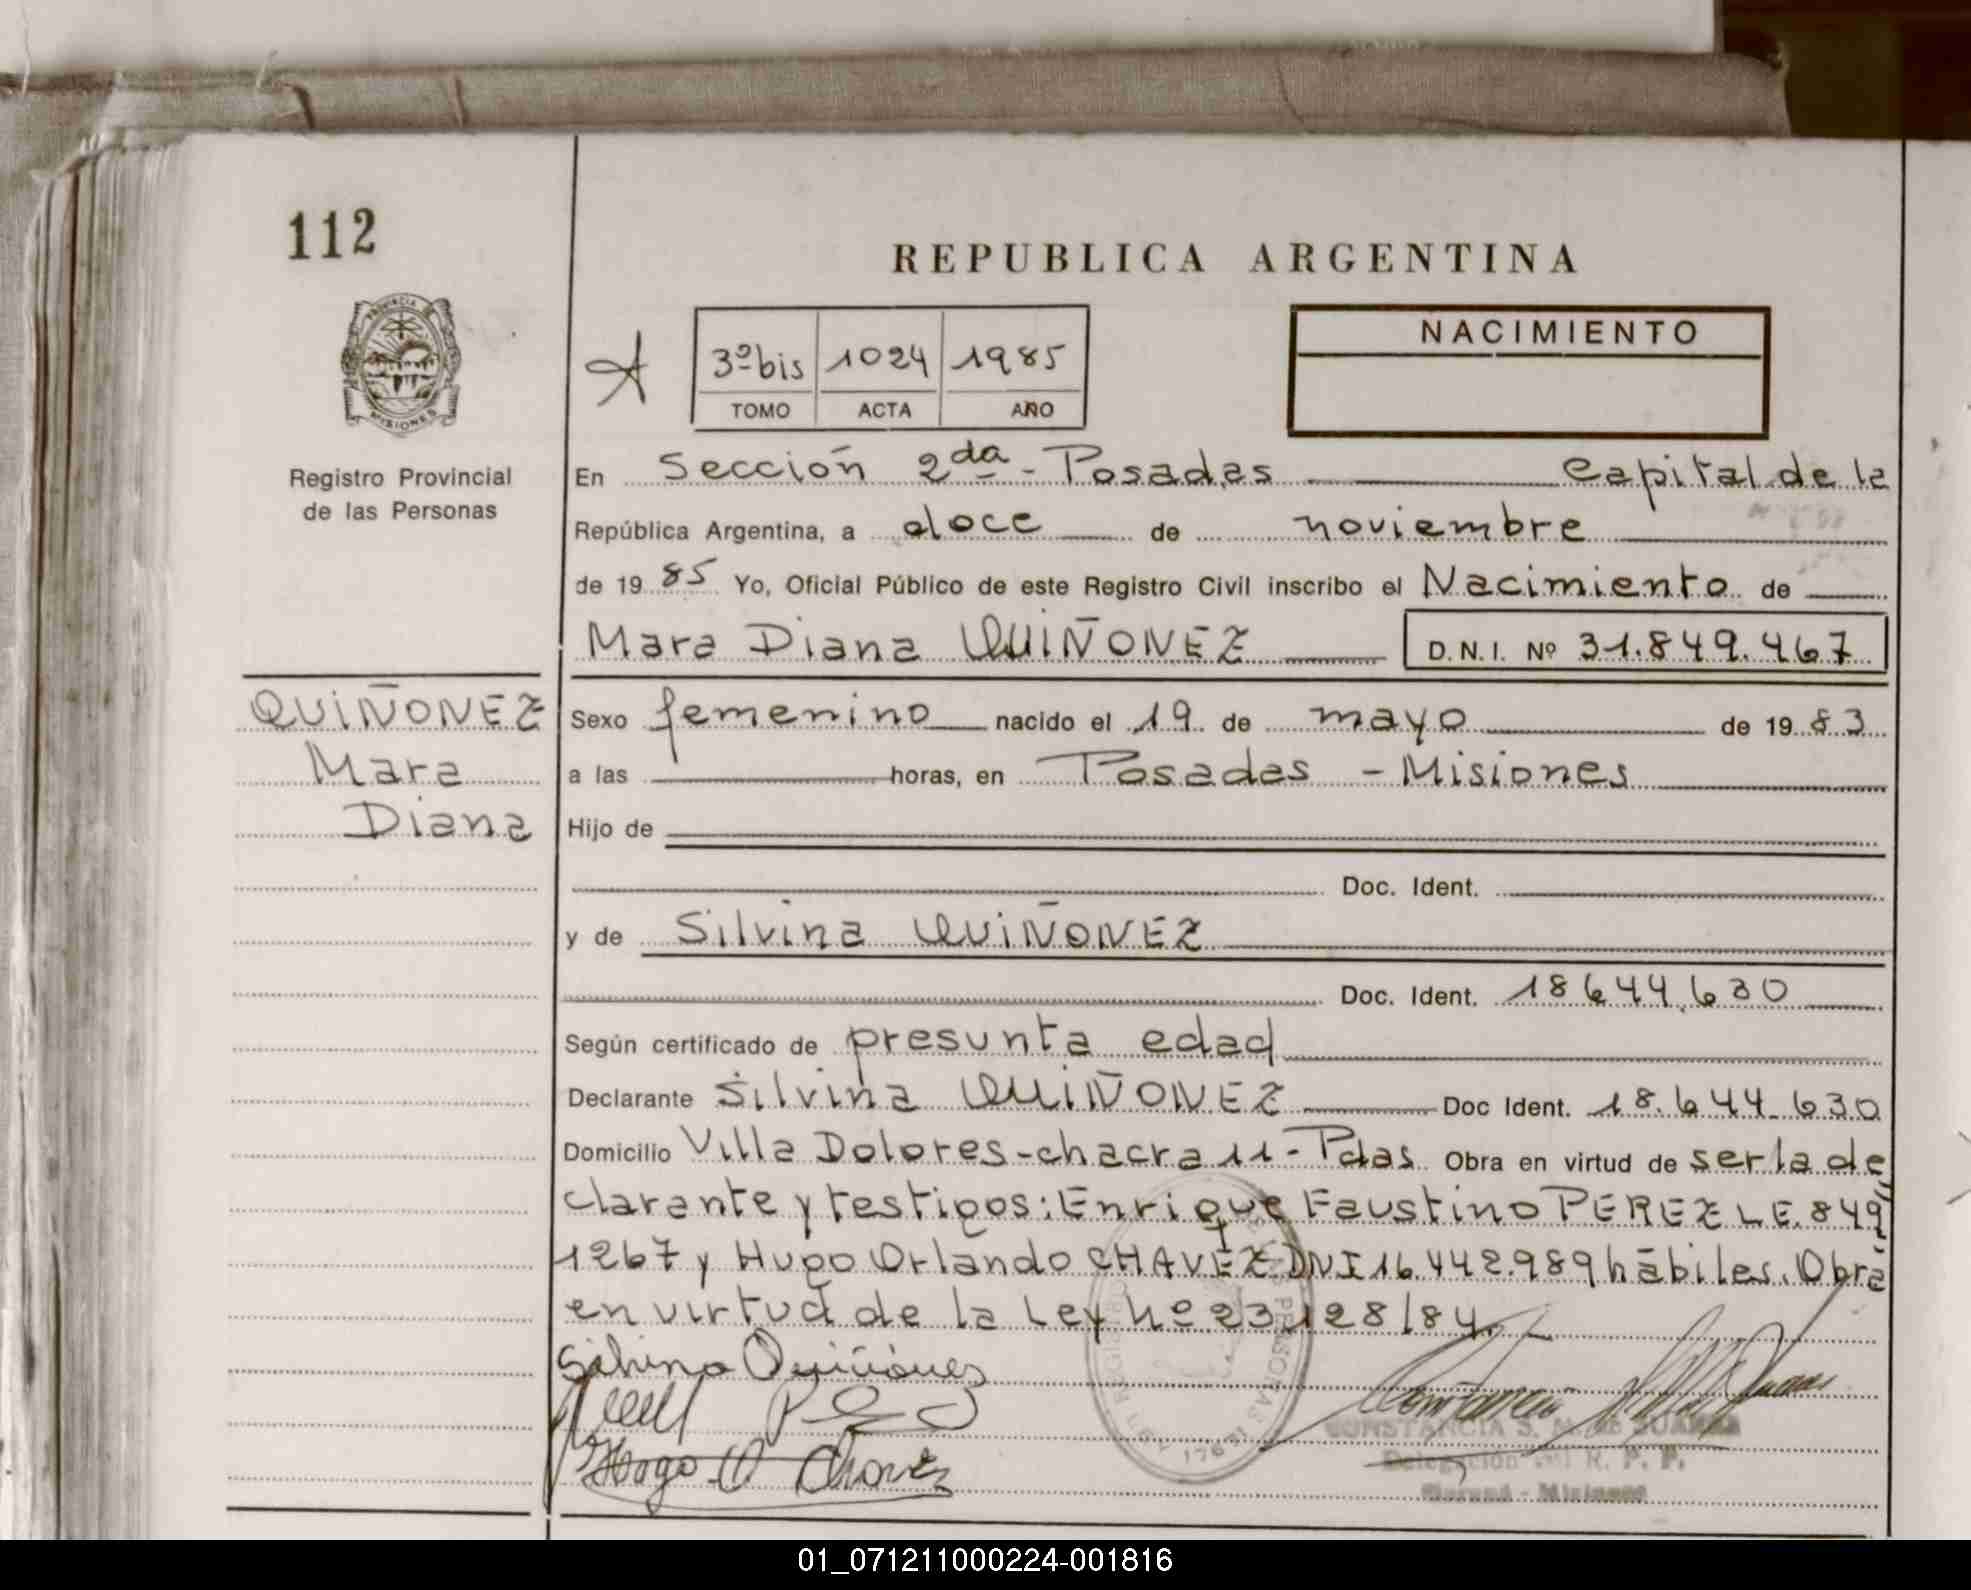 112
REPUBLICA ARGENTINA
PROVINCIA DE
MISIONES
3º bis 1024 1985
TOMO ACTA AÑO
NACIMIENTO
Registro Provincial
de las Personas
En Sección 2da - Posadas Capital de la
República Argentina, a doce de noviembre
de 19 85 Yo, Oficial Público de este Registro Civil inscribo el Nacimiento de
Mara Diana QUIÑONEZ D.N.I. Nº 31.849.467
QUIÑONEZ
Mara
Diana
Sexo femenino nacido el 19 de mayo de 19 83
a las horas, en Posadas - Misiones
Hijo de
Doc. Ident.
y de Silvina QUIÑONEZ
Doc. Ident. 18.644.630
Según certificado de presunta edad
Declarante Silvina QUIÑONEZ Doc Ident. 18.644.630
Domicilio Villa Dolores-chacra 11-Pdas Obra en virtud de ser la de
clarante y testigos: Enrique Faustino PEREZ L.E. 849
1267 y Hugo Orlando CHAVEZ DNI 16.442.989 hábiles. Obra
en virtud de la Ley Nº 23.128/84.
Silvina Quiñónez
Hugo O Chavez
CONSTANCIA S. M. de SUAREZ
Delegación del R. P. P.
Misiones
01_071211000224-001816